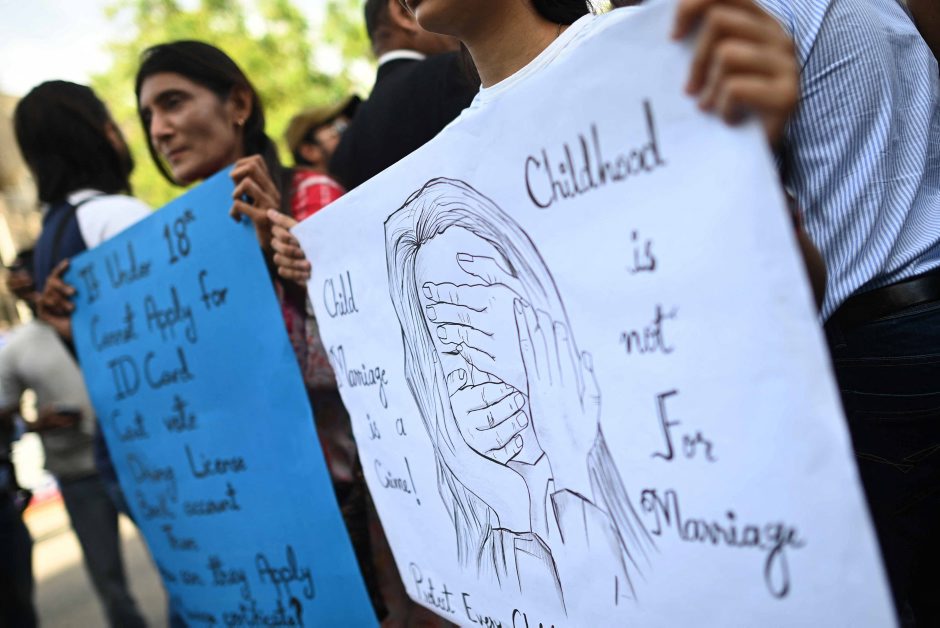 If Under 18th
Cannot Apply for
ID Card
Cast vote
Driving License
Bank account
Than
can they Apply
certificate?
Child
Marriage
is a
Crime!
Childhood
is
not
For
Marriage
Protect Every